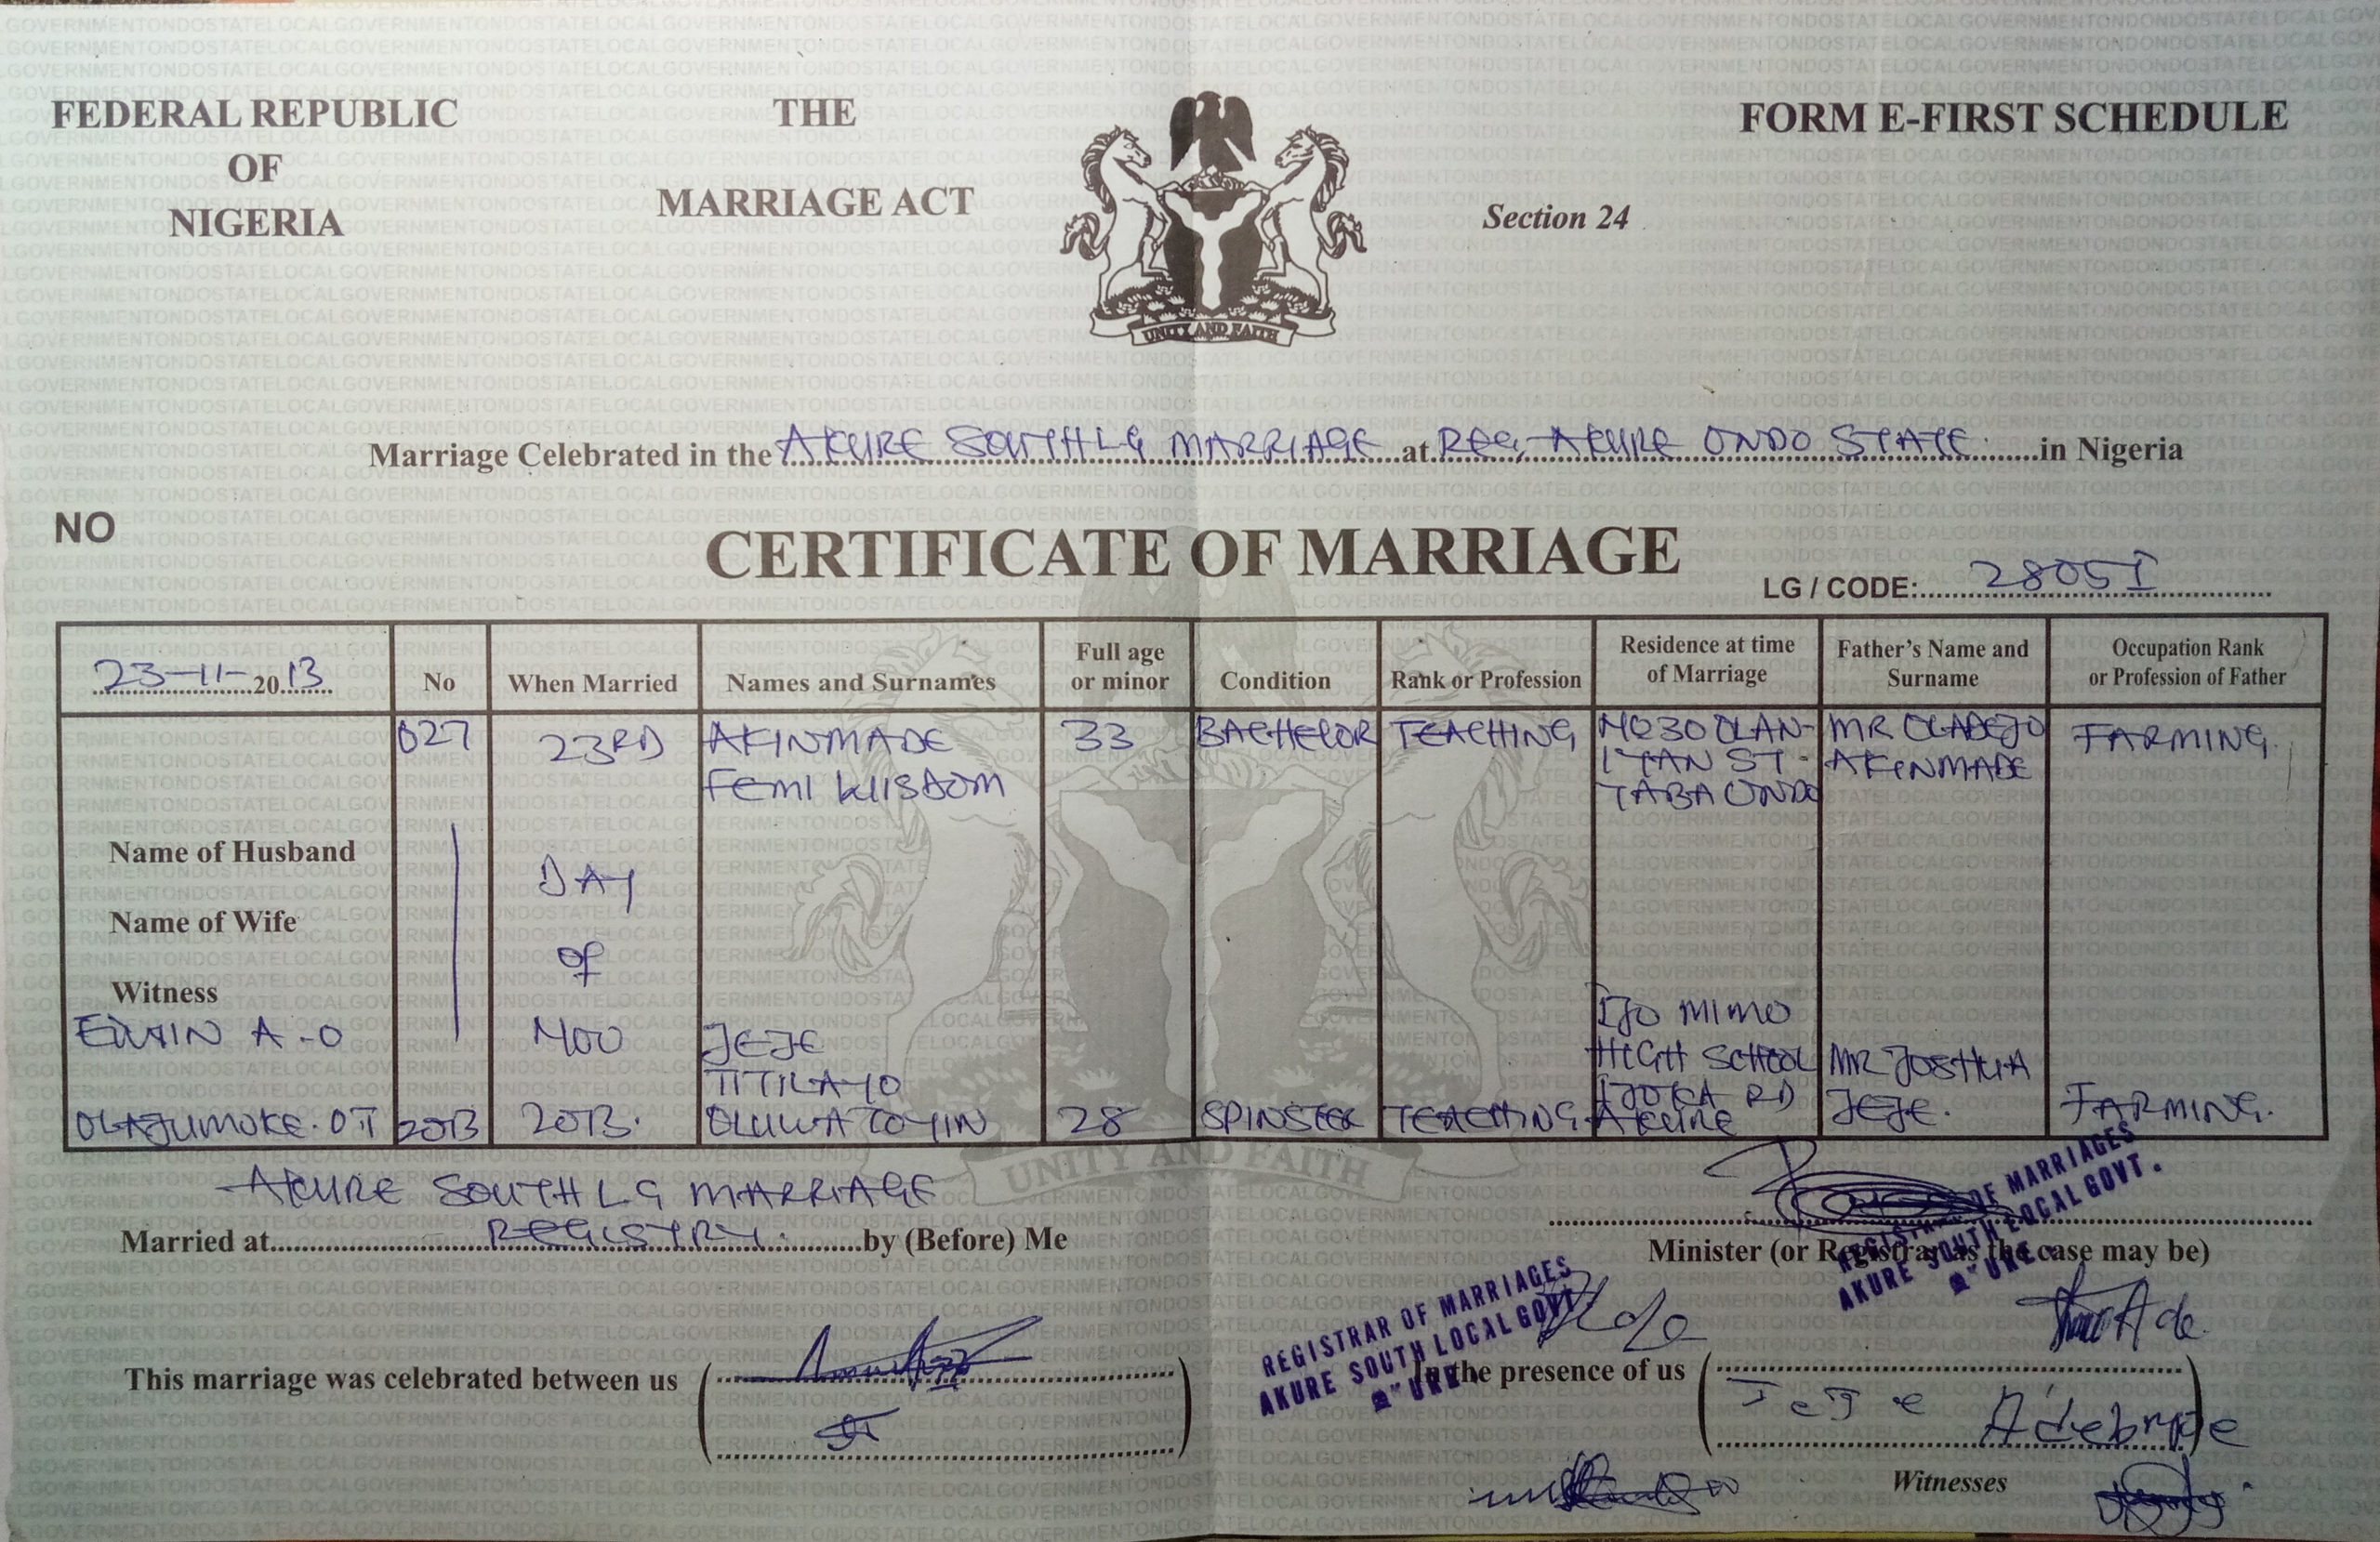 FEDERAL REPUBLIC
OF
NIGERIA
THE
MARRIAGE ACT
UNITY AND FAITH
FORM E-FIRST SCHEDULE
Section 24
Marriage Celebrated in the AKURE SOUTH LG MARRIAGE at REG, AKURE ONDO STATE. in Nigeria
NO
CERTIFICATE OF MARRIAGE
LG / CODE: 2805I
23-11-2013 No When Married Names and Surnames Full age or minor Condition Rank or Profession Residence at time of Marriage Father's Name and Surname Occupation Rank or Profession of Father
027 23RD AKINMADE 33 BACHELOR TEACHING NO30 OLAN- MR OLADEJO FARMING.
FEMI WISDOM IYAN ST. AKINMADE
YABA ONDO
Name of Husband
DAY
Name of Wife
OF
Witness
IJO MIMO
EDWIN A.O NOV JEJE HIGH SCHOOL MR JOSHUA
TITILAYO IJOKA RD
OLAJUMOKE. OT 2013 2013. OLUWATOYIN 28 SPINSTER TEACHING AKURE JEJE. FARMING.
UNITY AND FAITH
AKURE SOUTH L.G MARRIAGE
Married at REGISTRY. by (Before) Me
Minister (or Registrar as the case may be)
REGISTRAR OF MARRIAGES
AKURE SOUTH LOCAL GOVT.
REGISTRAR OF MARRIAGES
AKURE SOUTH LOCAL GOVT.
This marriage was celebrated between us
In the presence of us
Witnesses